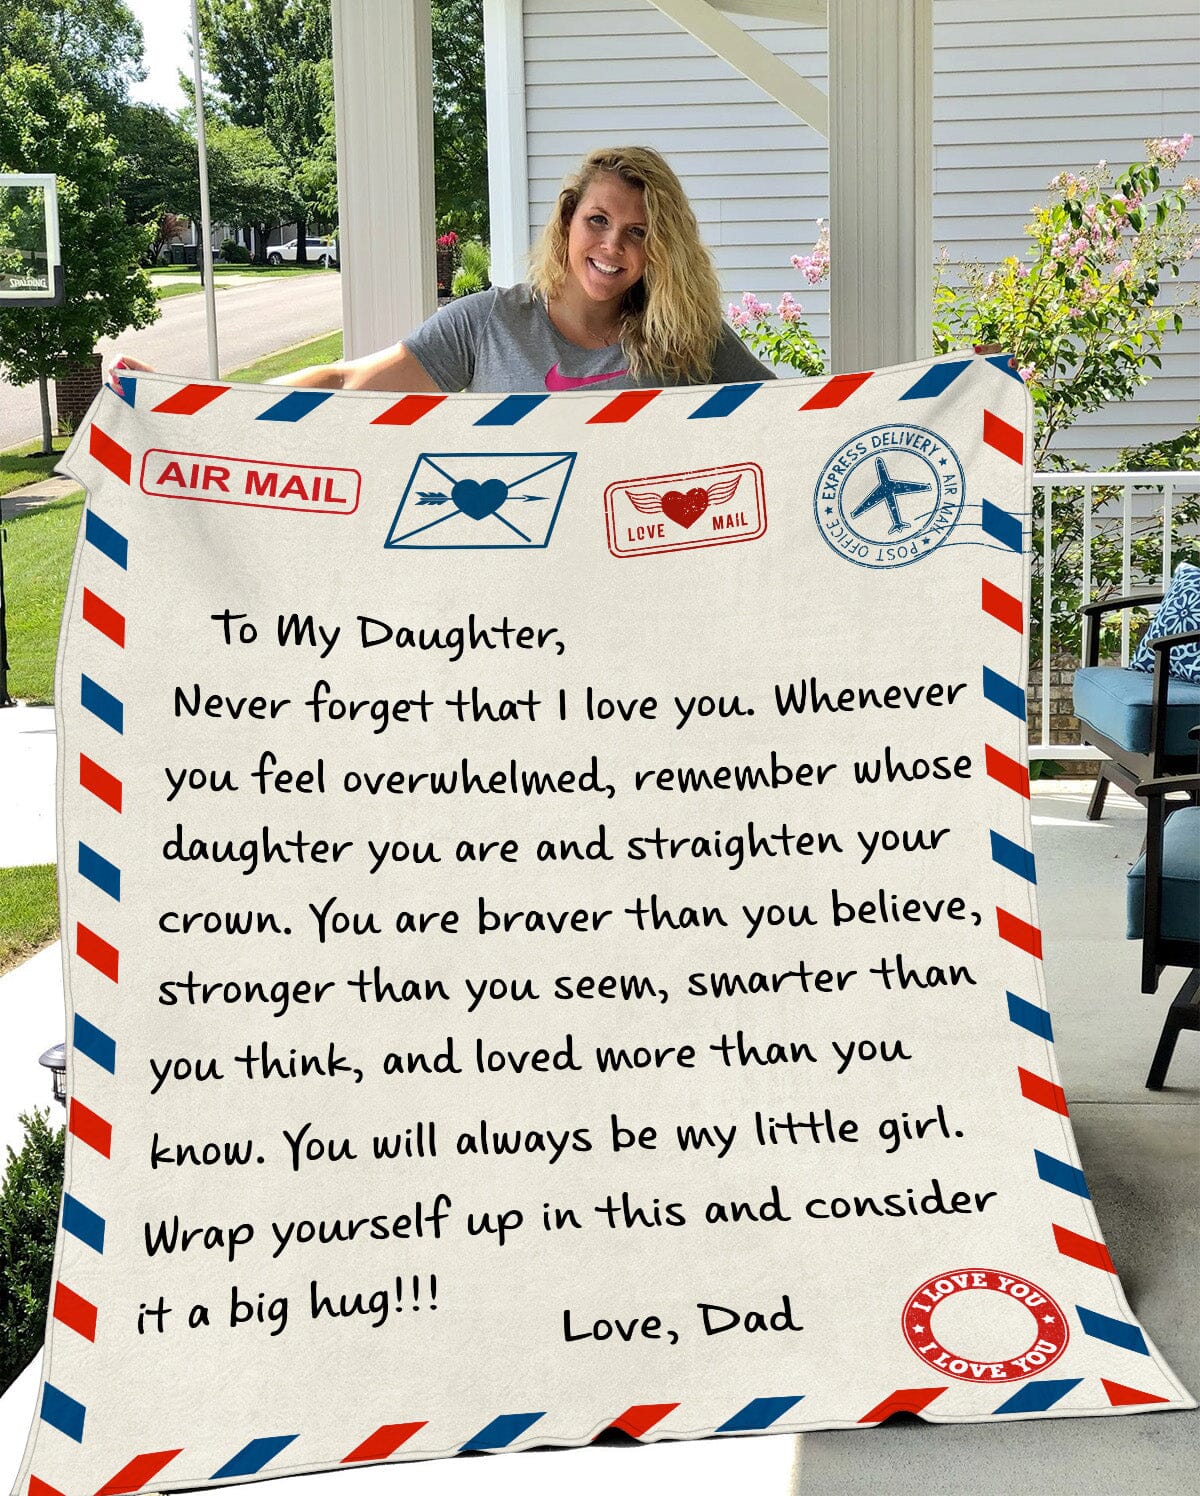 SPALDING
AIR MAIL
LOVE MAIL
EXPRESS DELIVERY ★ AIR MAIL ★ POST OFFICE ★
To My Daughter,
Never forget that I love you. Whenever
you feel overwhelmed, remember whose
daughter you are and straighten your
crown. You are braver than you believe,
stronger than you seem, smarter than
you think, and loved more than you
know. You will always be my little girl.
Wrap yourself up in this and consider
it a big hug!!!
Love, Dad
I LOVE YOU ★ I LOVE YOU ★